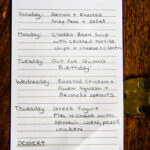 Sunday: Salmon + Roasted
Snap Peas + Salad
Monday: Cheesy Bean Soup
with crushed tortilla
chips + cheese + cilantro
Tuesday: Out for Quinn's
Birthday!
Wednesday: Roasted Chicken +
Acorn Squash +
Brussels sprouts
Thursday: Greek Yogurt
Mac 'n cheese with
spinach, corn, peas +
chicken
DESSERT: